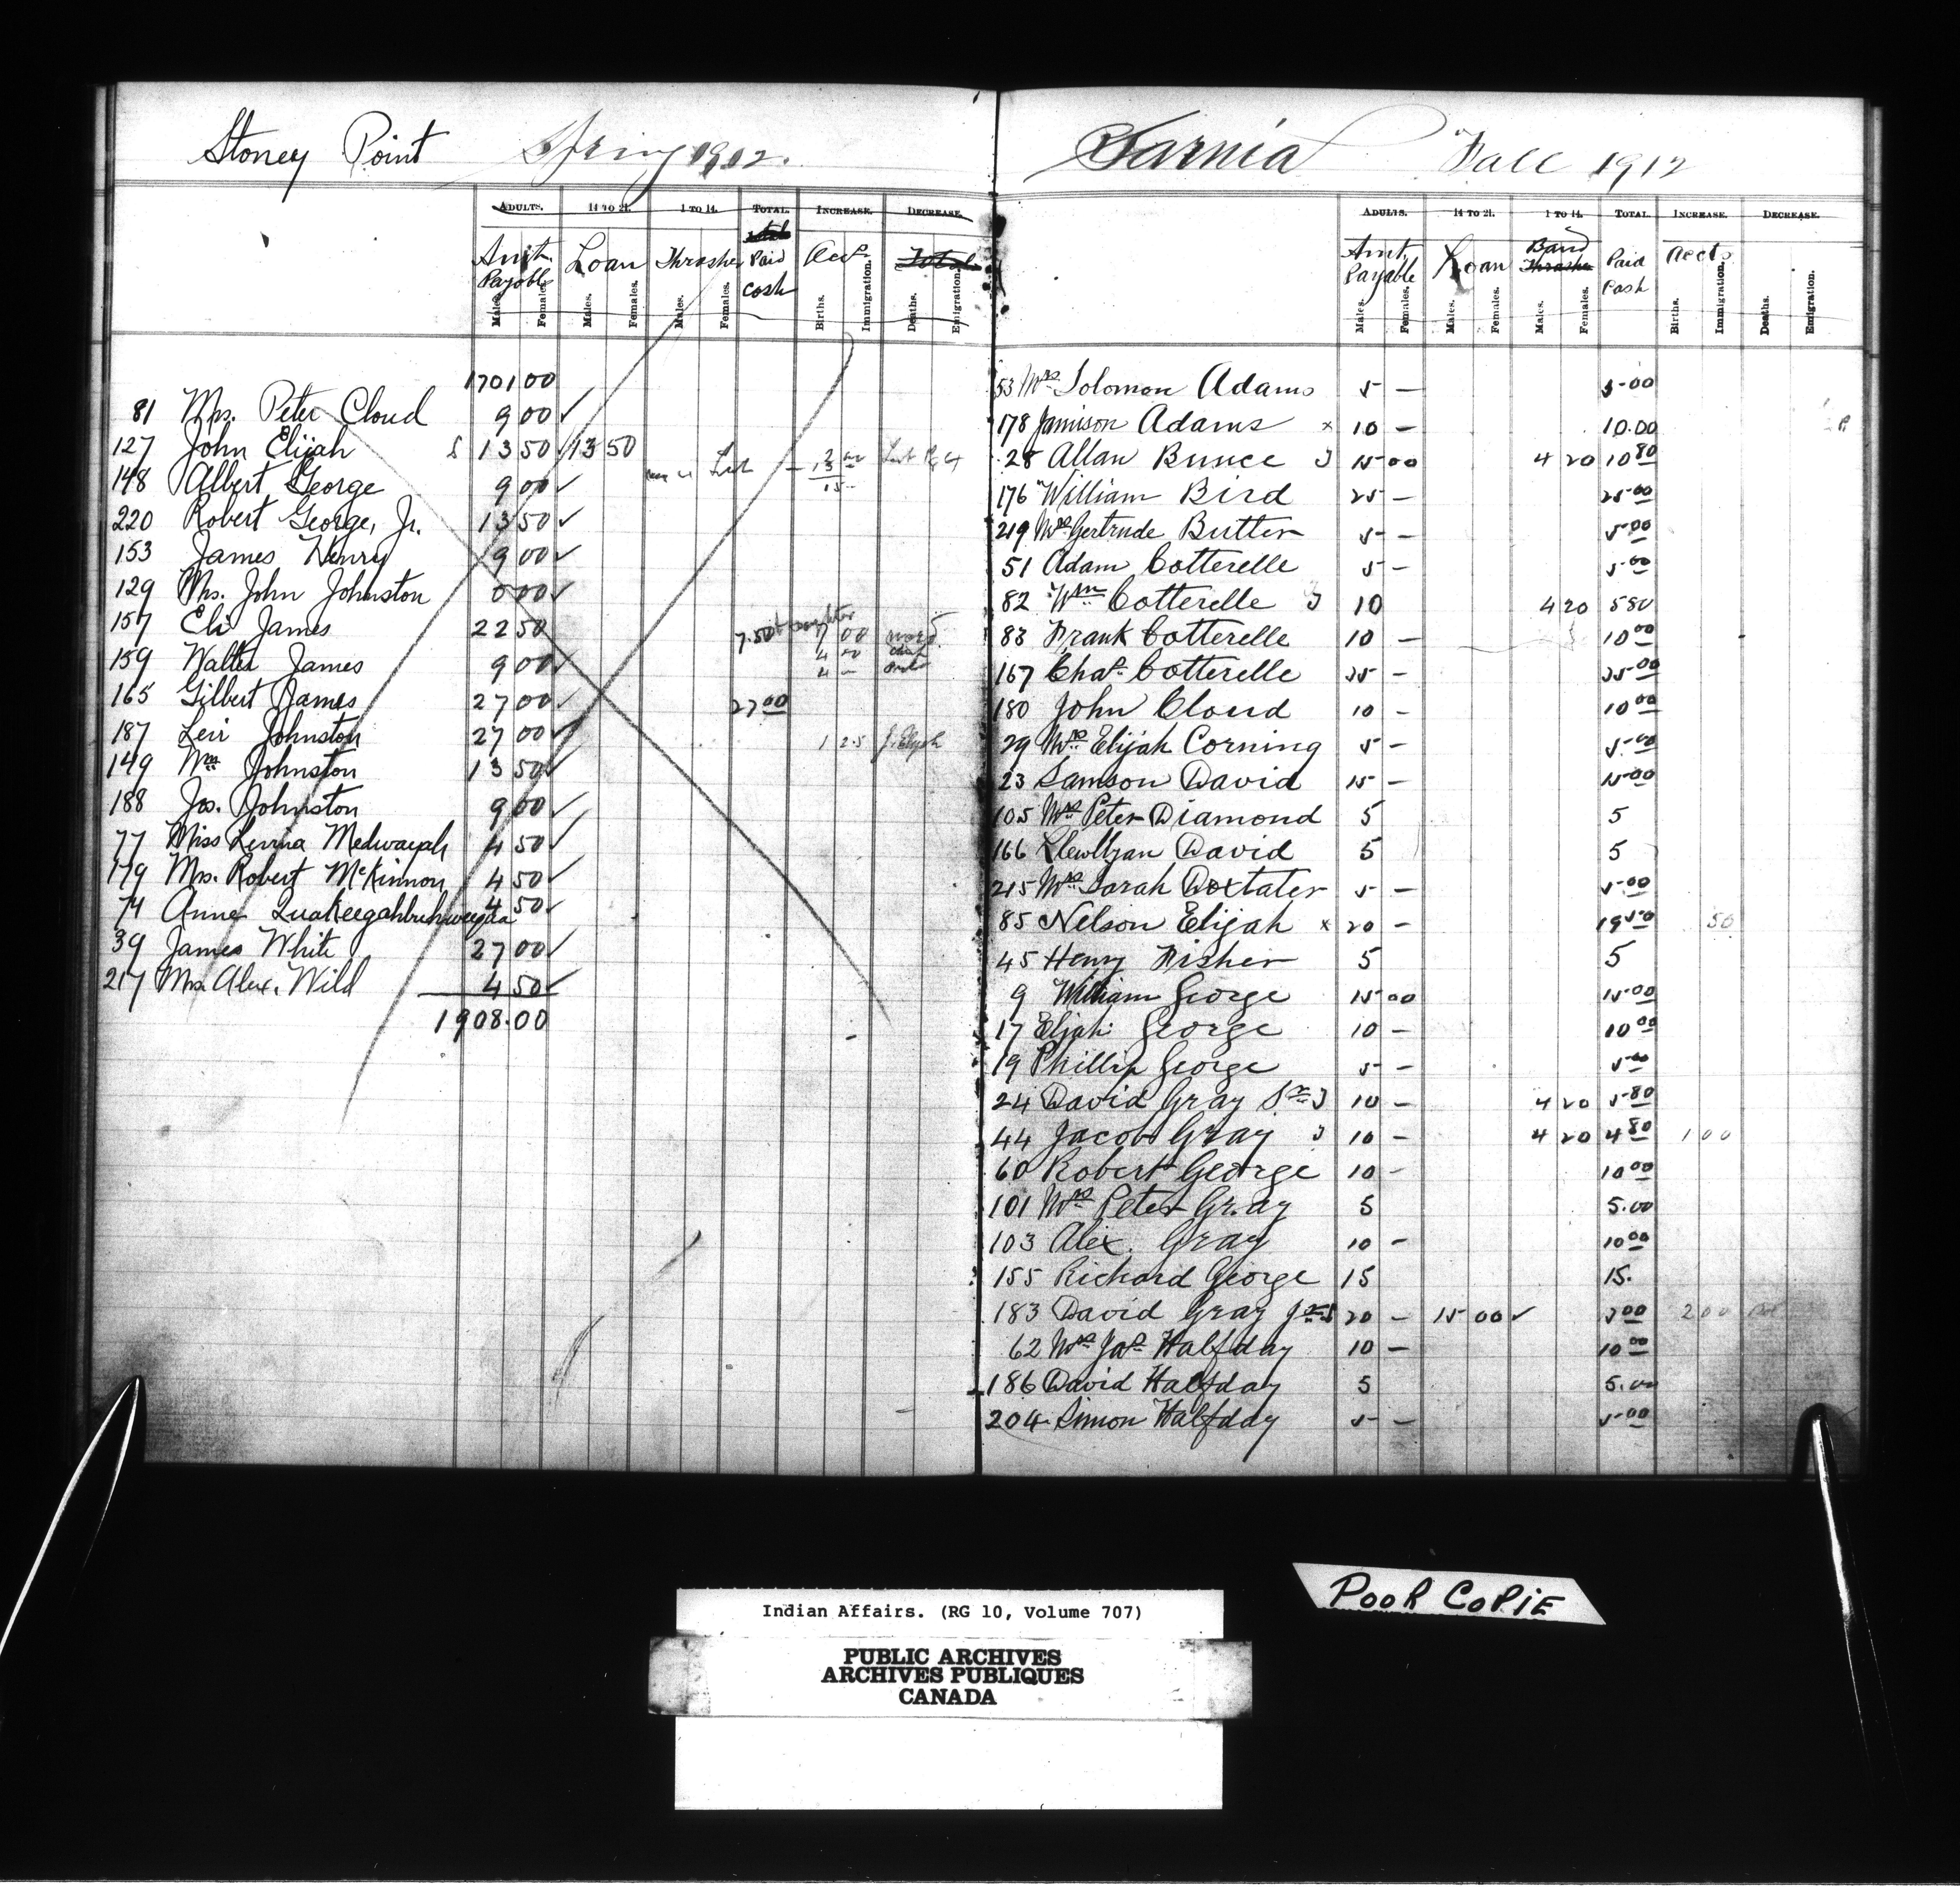 Stoney Point Spring 1912.
ADULTS. 14 TO 21. 1 TO 14. TOTAL. INCREASE. DECREASE.
Amt. Payable Loan Thrasher Paid cash Acct Total
Males. Females. Males. Females. Males. Females. Births. Immigration. Deaths. Emigration.
1701 00
81 Mrs. Peter Cloud 9 00 ✓
127 John Elijah 13 50 13 50
148 Albert George 9 00 ✓
220 Robert George, Jr. 13 50 ✓
153 James Henry 9 00 ✓
129 Mrs. John Johnston 0 00 ✓
157 Eli James 22 50 7.50 7 00
159 Walter James 9 00 ✓ 4
165 Gilbert James 27 00 ✓ 27 00
187 Levi Johnston 27 00 ✓ 1 25 J. Elijah
149 Wm Johnston 13 50 ✓
188 Jos. Johnston 9 00 ✓
77 Miss Lenna Medwayah 4 50 ✓
179 Mrs. Robert McKinnon 4 50 ✓
74 Anne Quakeegahbuhwequa 4 50 ✓
39 James White 27 00 ✓
217 Mrs. Alex. Wild 4 50 ✓
1908.00
Sarnia Fall 1912
ADULTS. 14 TO 21. 1 TO 14. TOTAL. INCREASE. DECREASE.
Amt. Payable Loan Band Thrasher Paid Cash Accts
Males. Females. Males. Females. Males. Females. Births. Immigration. Deaths. Emigration.
53 Mrs Solomon Adams 5 — 5 00
178 Jamison Adams x 10 — 10.00
28 Allan Bunce J 15 00 4 20 10 80
176 William Bird 25 — 25 00
219 Mrs Gertrude Butter 5 — 5 00
51 Adam Cotterelle 5 — 5 00
82 Wm Cotterelle J 10 4 20 5 80
83 Frank Cotterelle 10 — 10 00
167 Chas. Cotterelle 35 — 35 00
180 John Cloud 10 — 10 00
29 Mrs Elijah Corning 5 — 5 00
23 Samson David 15 — 15 00
105 Mrs Peter Diamond 5 5
166 Llewllyan David 5 5
215 Mrs Sarah Doxtater 5 — 5 00
85 Nelson Elijah x 20 — 19 50 50
45 Henry Fisher 5 5
9 William George 15 00 15 00
17 Elijah George 10 — 10 00
19 Phillip George 5 — 5 00
24 David Gray Sr J 10 — 4 20 5 80
44 Jacob Gray J 10 — 4 20 4 80 1 00
60 Robert George 10 — 10 00
101 Mrs Peter Gray 5 5.00
103 Alex. Gray 10 — 10 00
155 Richard George 15 15.
183 David Gray Jr S 20 — 15 00 ✓ 3 00 2 00
62 Mrs Jas Halfday 10 — 10 00
186 David Halfday 5 5.00
204 Simon Halfday 5 — 5 00
Indian Affairs. (RG 10, Volume 707)
PUBLIC ARCHIVES
ARCHIVES PUBLIQUES
CANADA
POOR COPIE